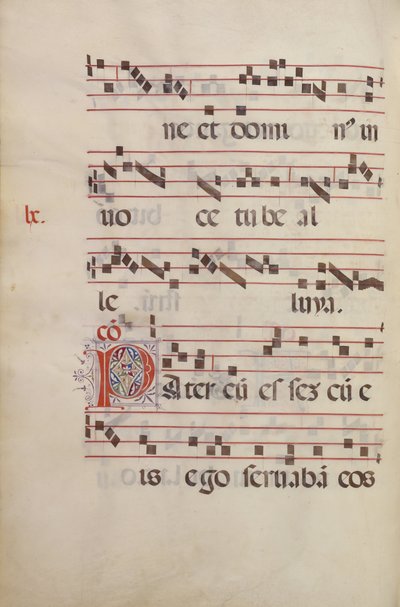 ne et domi n⁹ in
lx.
uo ce tu be al
le luya.
cō
PAter cū es sez cū e
is ego seruabā eos